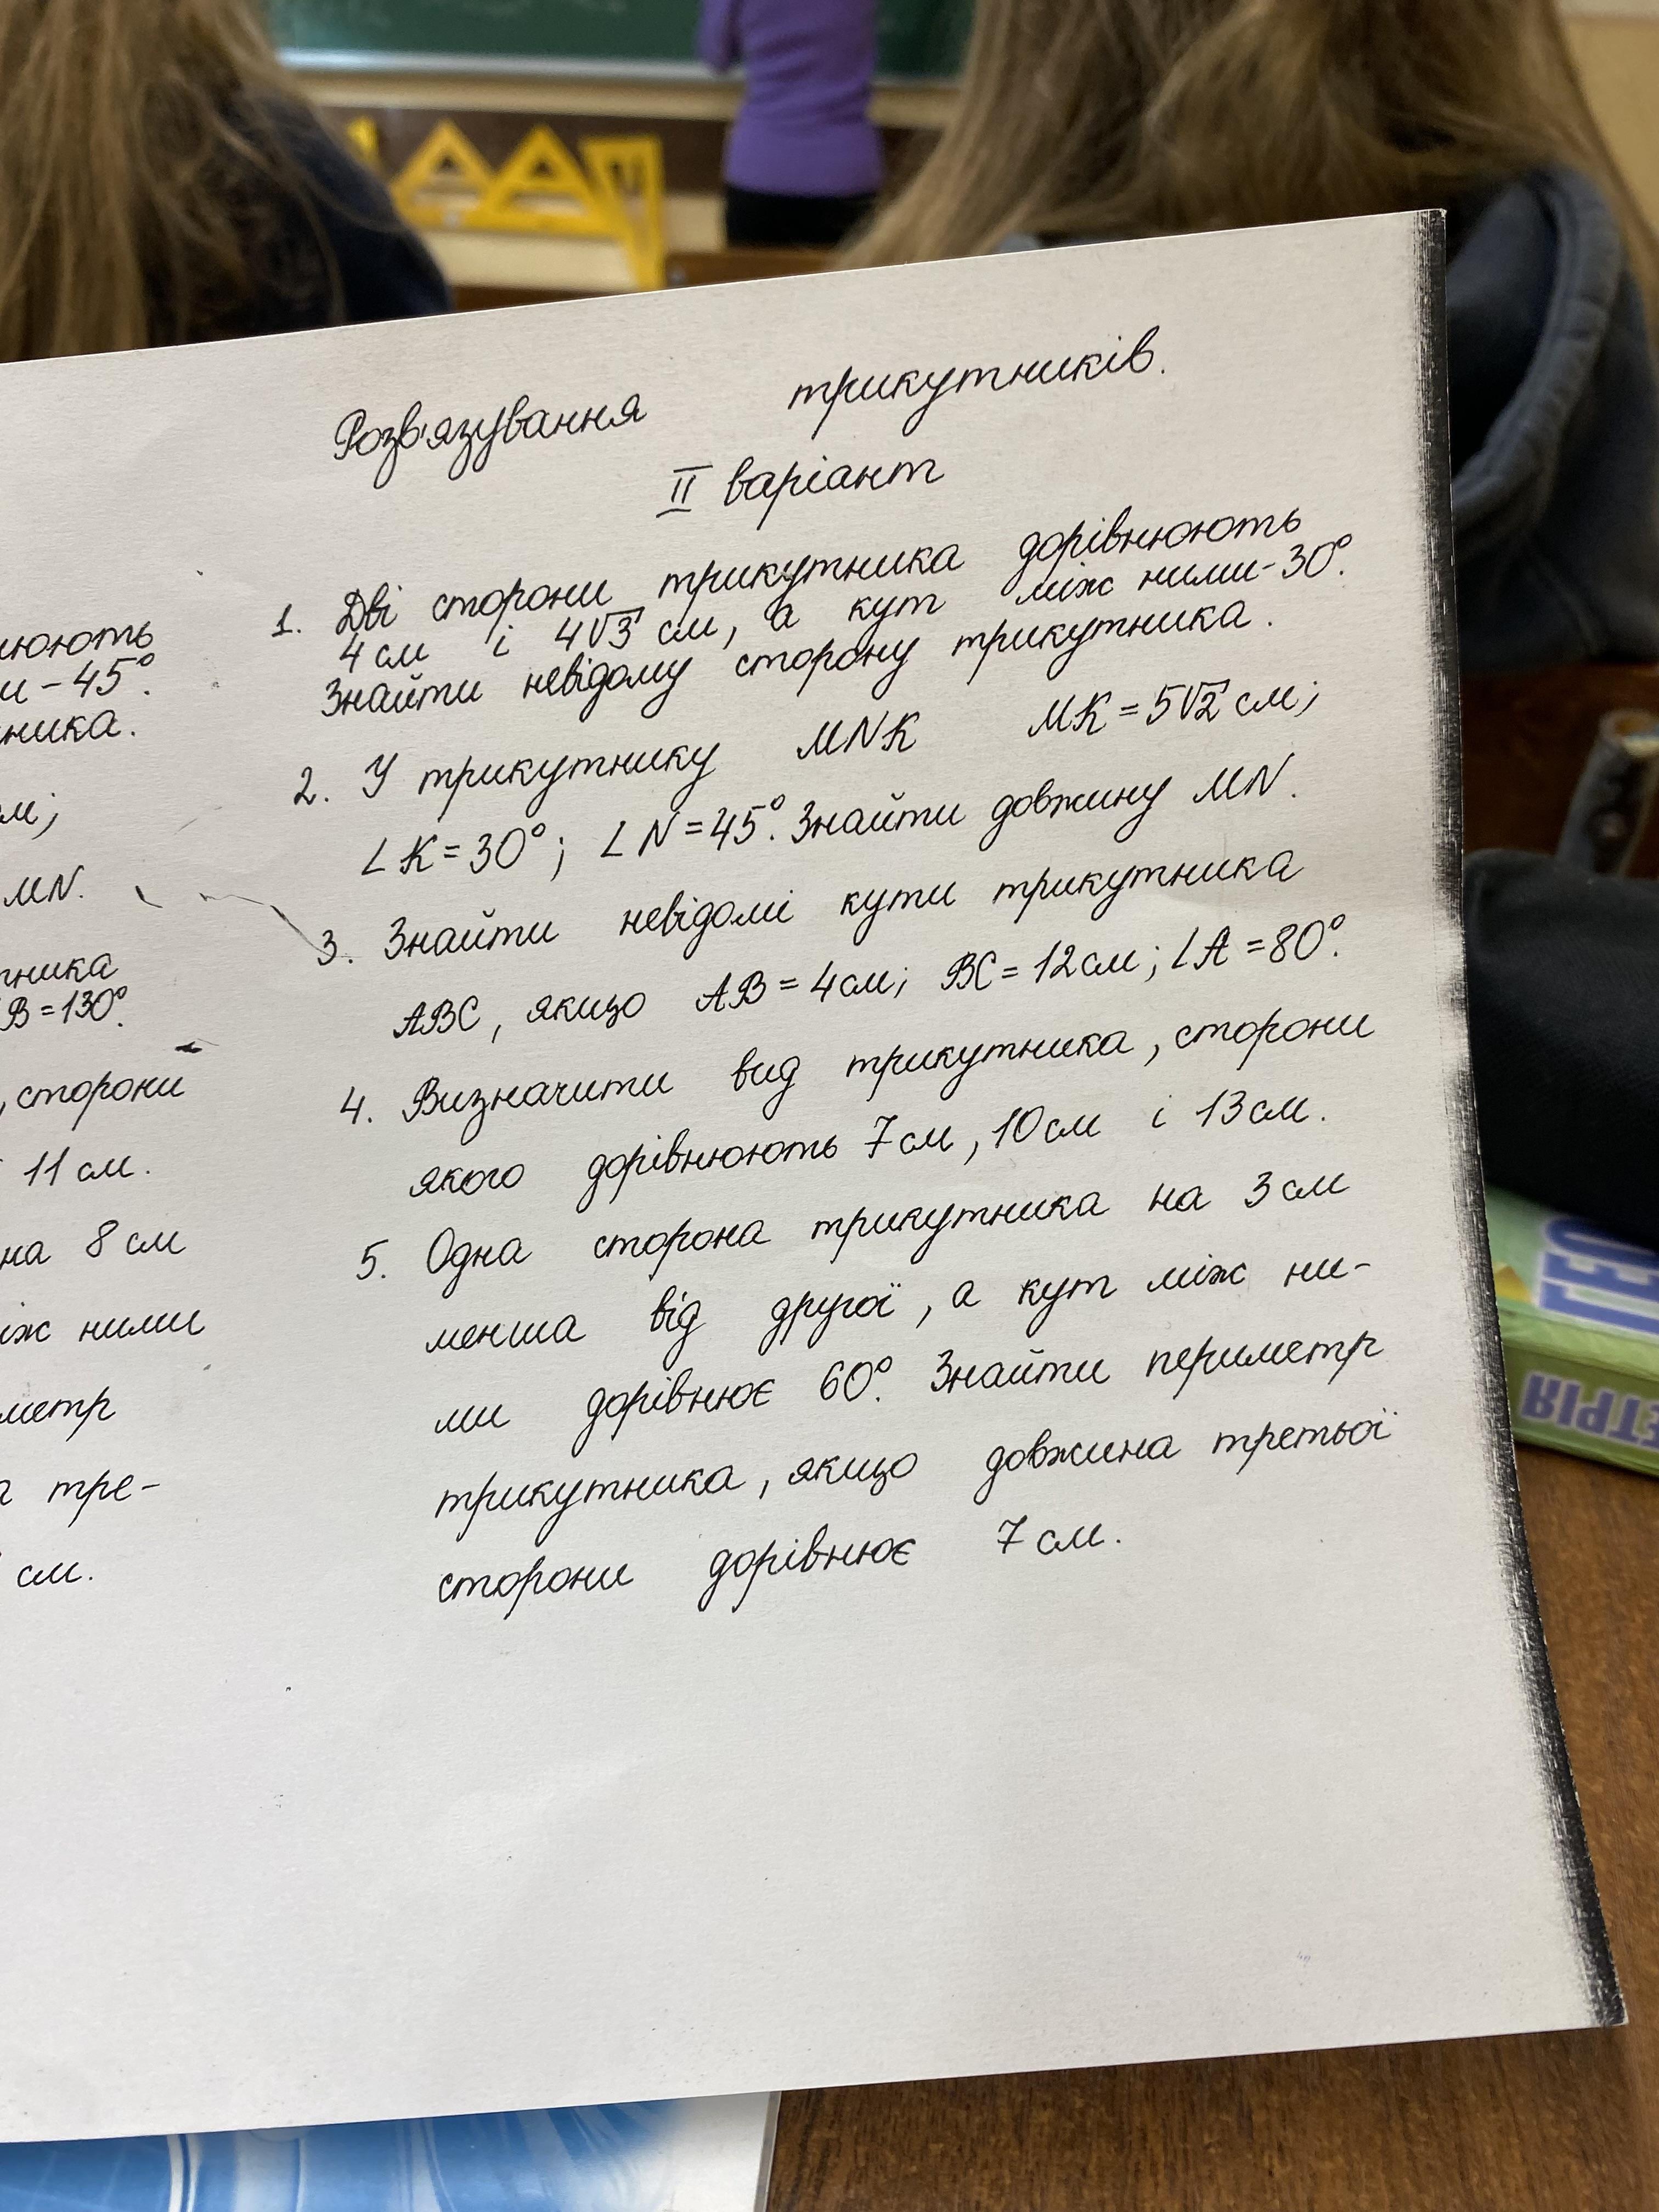 Розв'язування трикутників.
II варіант
1. Дві сторони трикутника дорівнюють
4 см і 4√3 см, а кут між ними - 30°.
Знайти невідому сторону трикутника.
2. У трикутнику MNK MK = 5√2 см;
∠K = 30°; ∠N = 45°. Знайти довжину MN.
3. Знайти невідомі кути трикутника
ABC, якщо AB = 4 см; BC = 12 см; ∠A = 80°.
4. Визначити вид трикутника, сторони
якого дорівнюють 7 см, 10 см і 13 см.
5. Одна сторона трикутника на 3 см
менша від другої, а кут між ни-
ми дорівнює 60°. Знайти периметр
трикутника, якщо довжина третьої
сторони дорівнює 7 см.
нюють
и - 45°.
ника.
м;
MN.
тника
B = 130°.
, сторони
11 см.
на 8 см
іж ними
метр
тре-
см.
ГЕО
ЕТРІЯ